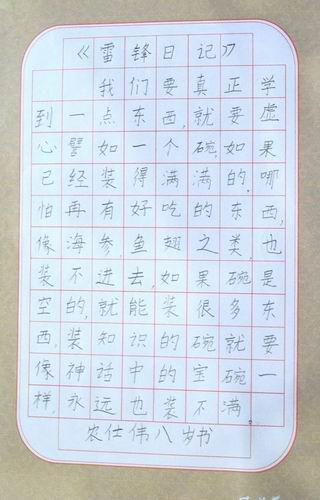 《雷锋日记》
我们要真正学
到一点东西,就要虚
心譬如一个碗,如果
已经装得满满的,哪
怕再有好吃的东西,
像海参,鱼翅之类,也
装不进去,如果碗是
空的,就能装很多东
西,装知识的碗就要
像神话中的宝碗一
样,永远也装不满。
农仕伟八岁书